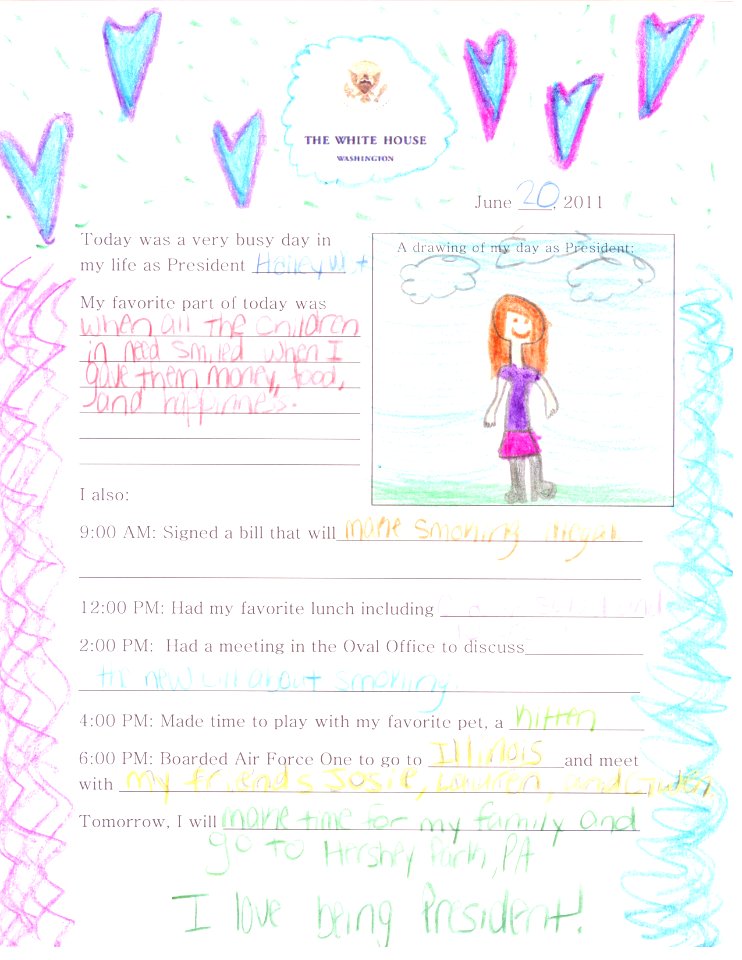 THE WHITE HOUSE
WASHINGTON
June 20, 2011
Today was a very busy day in
my life as President Hailey
My favorite part of today was
when all the children
in need smiled when I
gave them money, food,
and happiness.
A drawing of my day as President:
I also:
9:00 AM: Signed a bill that will make smoking illegal
12:00 PM: Had my favorite lunch including
2:00 PM: Had a meeting in the Oval Office to discuss
the new bill about smoking.
4:00 PM: Made time to play with my favorite pet, a kitten
6:00 PM: Boarded Air Force One to go to Illinois and meet
with my friends Josie, Lauren, and
Tomorrow, I will make time for my family and
go to Hershey Park, PA
I love being President!